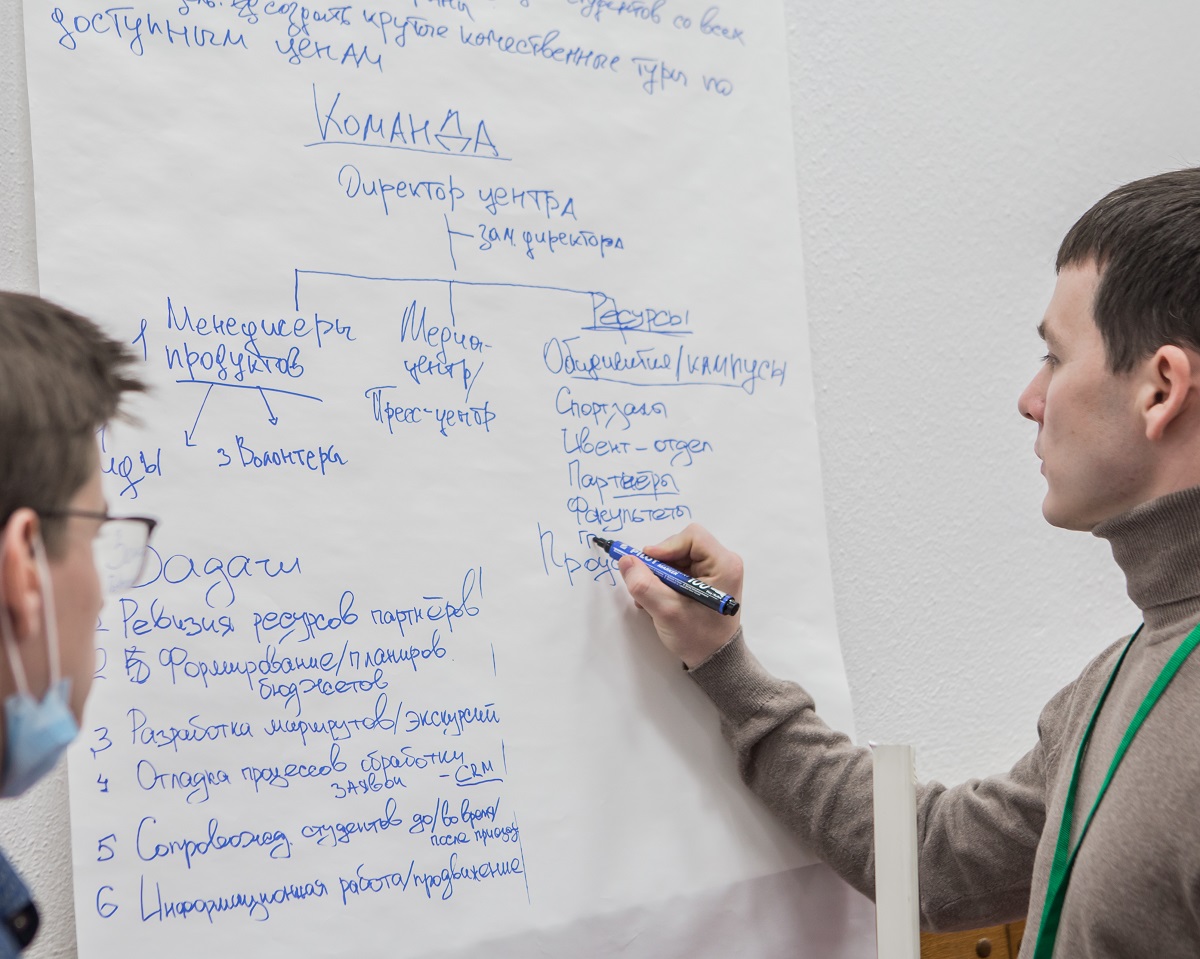 студентов со всех
создать крутые качественные туры по
доступным ценам
КОМАНДА
Директор центра
зам. директора
1 Менеджеры
продуктов
3 Волонтера
Медиа-
центр/
Пресс-центр
Ресурсы
Общежития/кампусы
Спортзалы
Ивент-отдел
Партнёры
Факультеты
PILOT 100
Задачи
Ревизия ресурсов партнёров
2 Формирование/планиров.
бюджетов
3 Разработка маршрутов/экскурсий
4 Отладка процессов обработки
заявки - CRM
5 Сопровожд. студентов до/во время/
после приезда
6 Информационная работа/продвижение